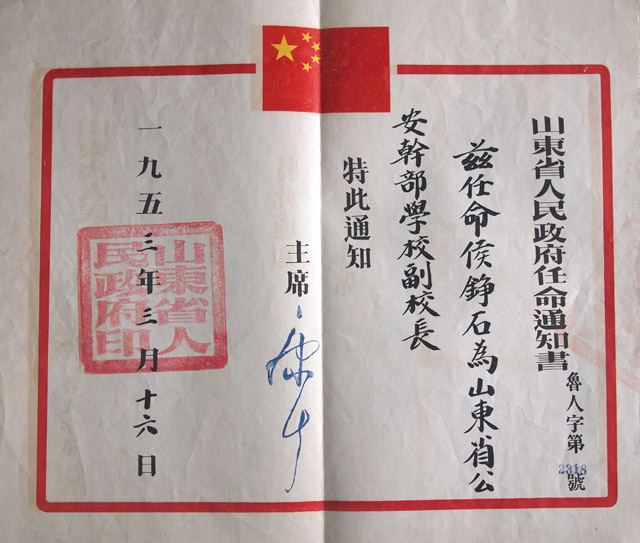 山東省人民政府任命通知書
魯人字第2318號
茲任命侯錚石為山東省公
安幹部學校副校長
特此通知
主席
一九五三年三月十六日
山東省人民政府印